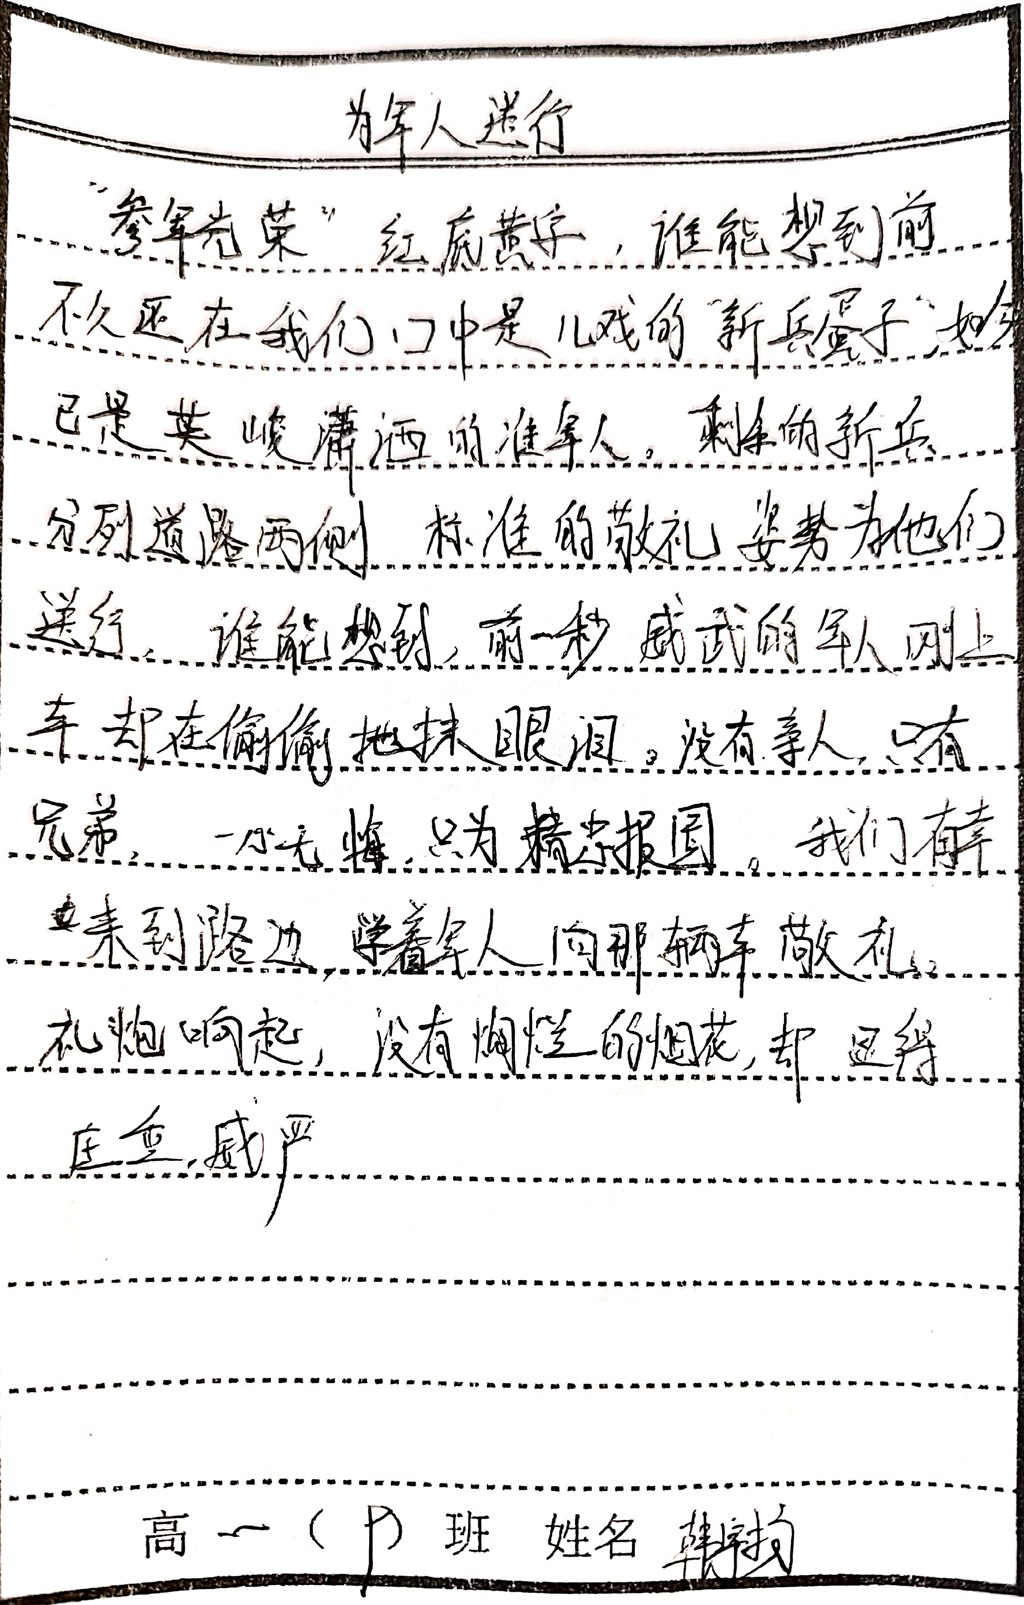 为军人送行
"参军光荣"红底黄字，谁能想到前
不久还在我们口中是儿戏的"新兵蛋子"，如今
已是英峻潇洒的准军人。剩余的新兵
分列道路两侧 标准的敬礼姿势为他们
送行，谁能想到，前一秒威武的军人刚上
车却在偷偷地抹眼泪。没有亲人，只有
兄弟，一心无悔，只为精忠报国。我们有幸
来到路边，学着军人向那辆车敬礼。
礼炮响起，没有烟烂的烟花，却显得
庄重，威严
高一（ ）班 姓名 韩